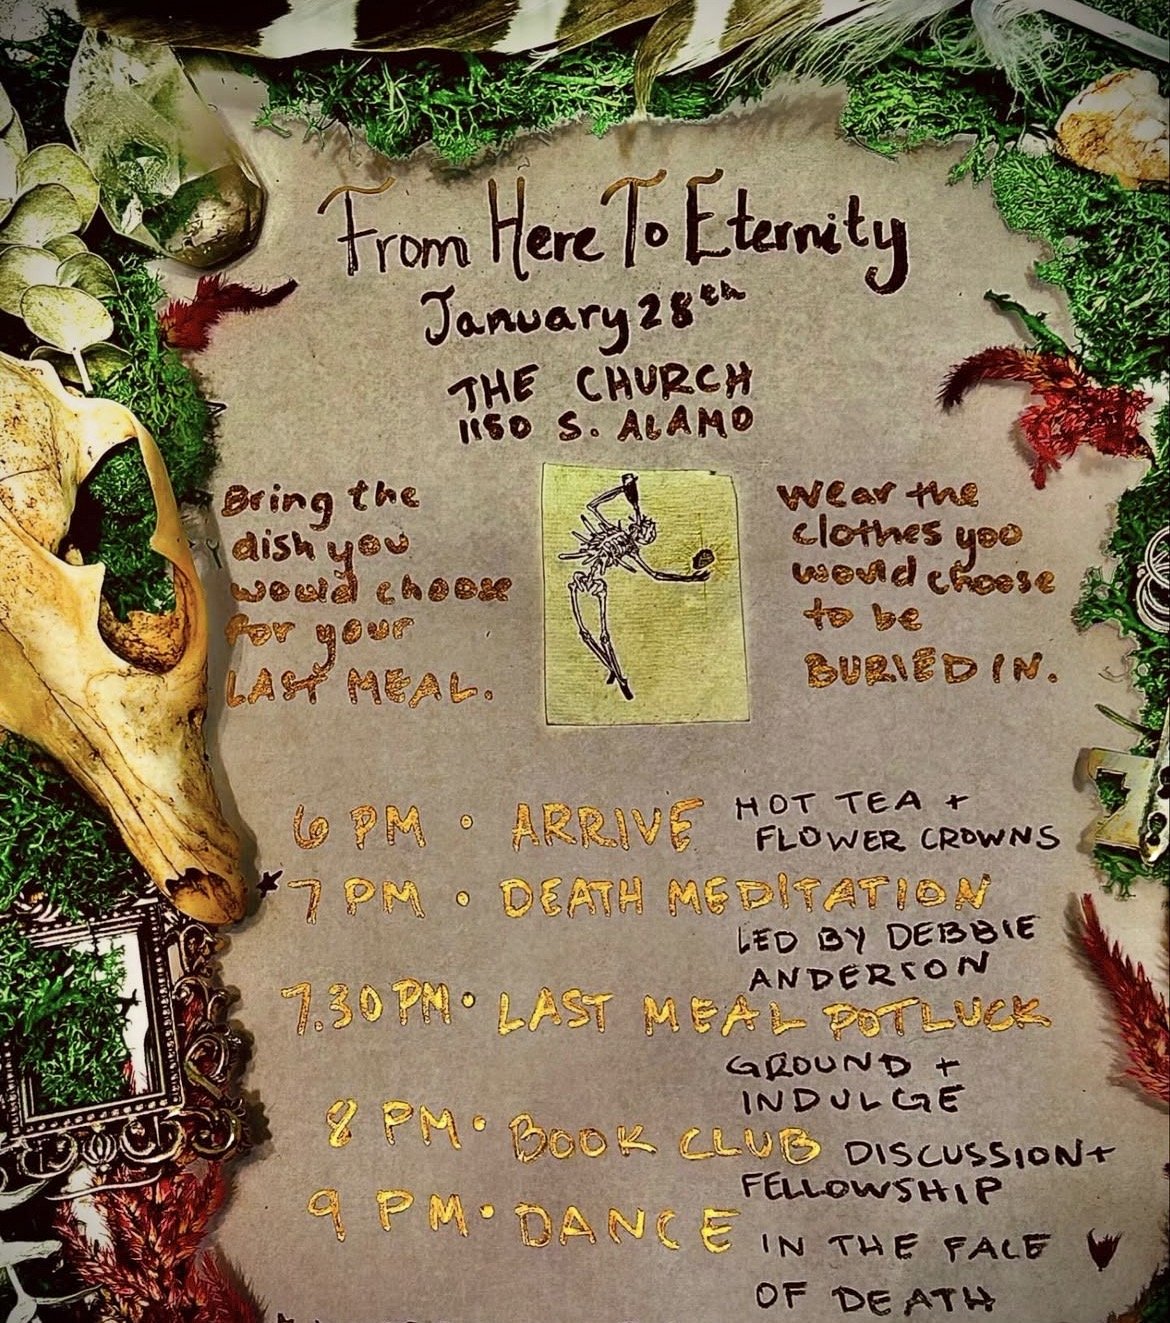 From Here To Eternity
January 28th
THE CHURCH
1150 S. ALAMO
Bring the
dish you
would choose
for your
LAST MEAL.
Wear the
clothes you
would choose
to be
BURIED IN.
6 PM • ARRIVE HOT TEA +
FLOWER CROWNS
7 PM • DEATH MEDITATION
LED BY DEBBIE
ANDERSON
7.30 PM • LAST MEAL POTLUCK
GROUND +
INDULGE
8 PM • BOOK CLUB DISCUSSION +
FELLOWSHIP
9 PM • DANCE IN THE FACE
OF DEATH